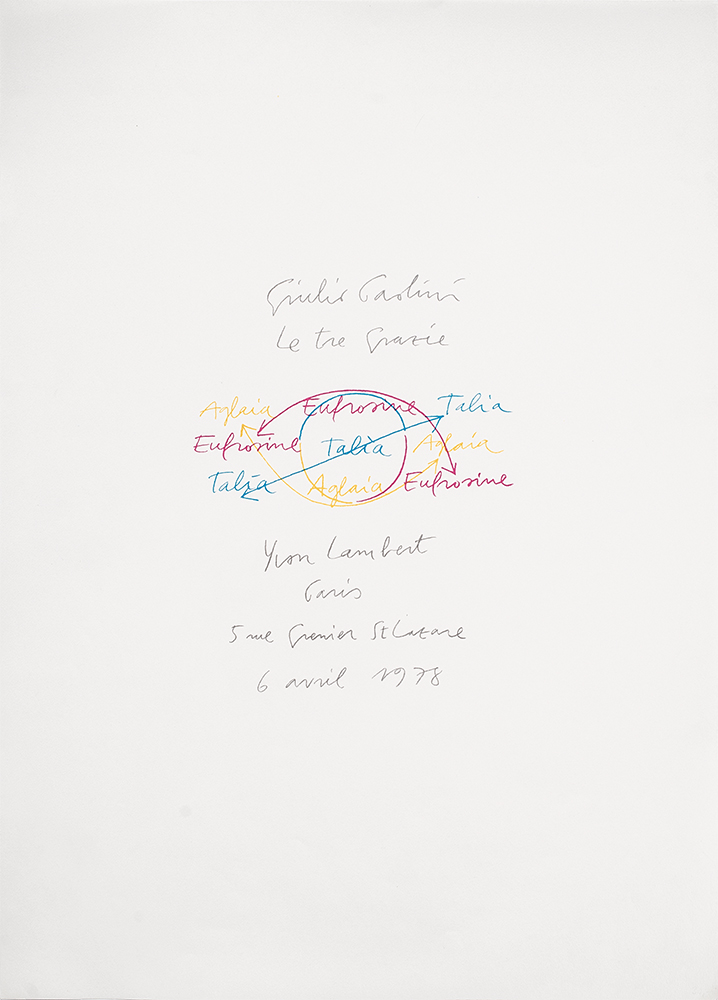 Giulio Paolini
Le tre Grazie
Aglaia Eufrosine Talìa
Eufrosine Talìa Aglaia
Talìa Aglaia Eufrosine
Yvon Lambert
Paris
5 rue Grenier St Lazare
6 avril 1978